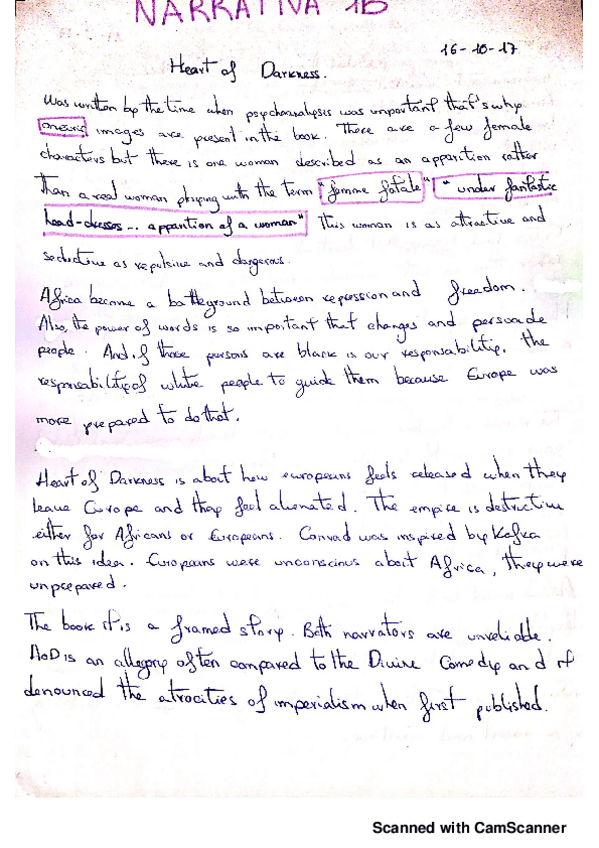 NARRATIVA 1B
16-10-17
Heart of Darkness.
Was written by the time when psychoanalysis was important that's why
oneiric images are present in the book. There are a few female
characters but there is one woman described as an apparition rather
than a real woman playing with the term "femme fatale" "under fantastic
head-dresses... apparition of a woman" This woman is as attractive and
seductive as repulsive and dangerous.
Africa become a battleground between repression and freedom.
Also, the power of words is so important that changes and persuade
people. And if those persons are black is our responsability. The
responsability of white people to guide them because Europe was
more prepared to do that.
Heart of Darkness is about how europeans feels released when they
leave Europe and they feel alienated. The empire is destructive
either for Africans or Europeans. Conrad was inspired by Kafka
on this idea. Europeans were unconscious about Africa, they were
unprepared.
The book it is a framed story. Both narrators are unreliable.
HoD is an allegory often compared to the Divine Comedy and it
denounced the atrocities of imperialism when first published.
Scanned with CamScanner